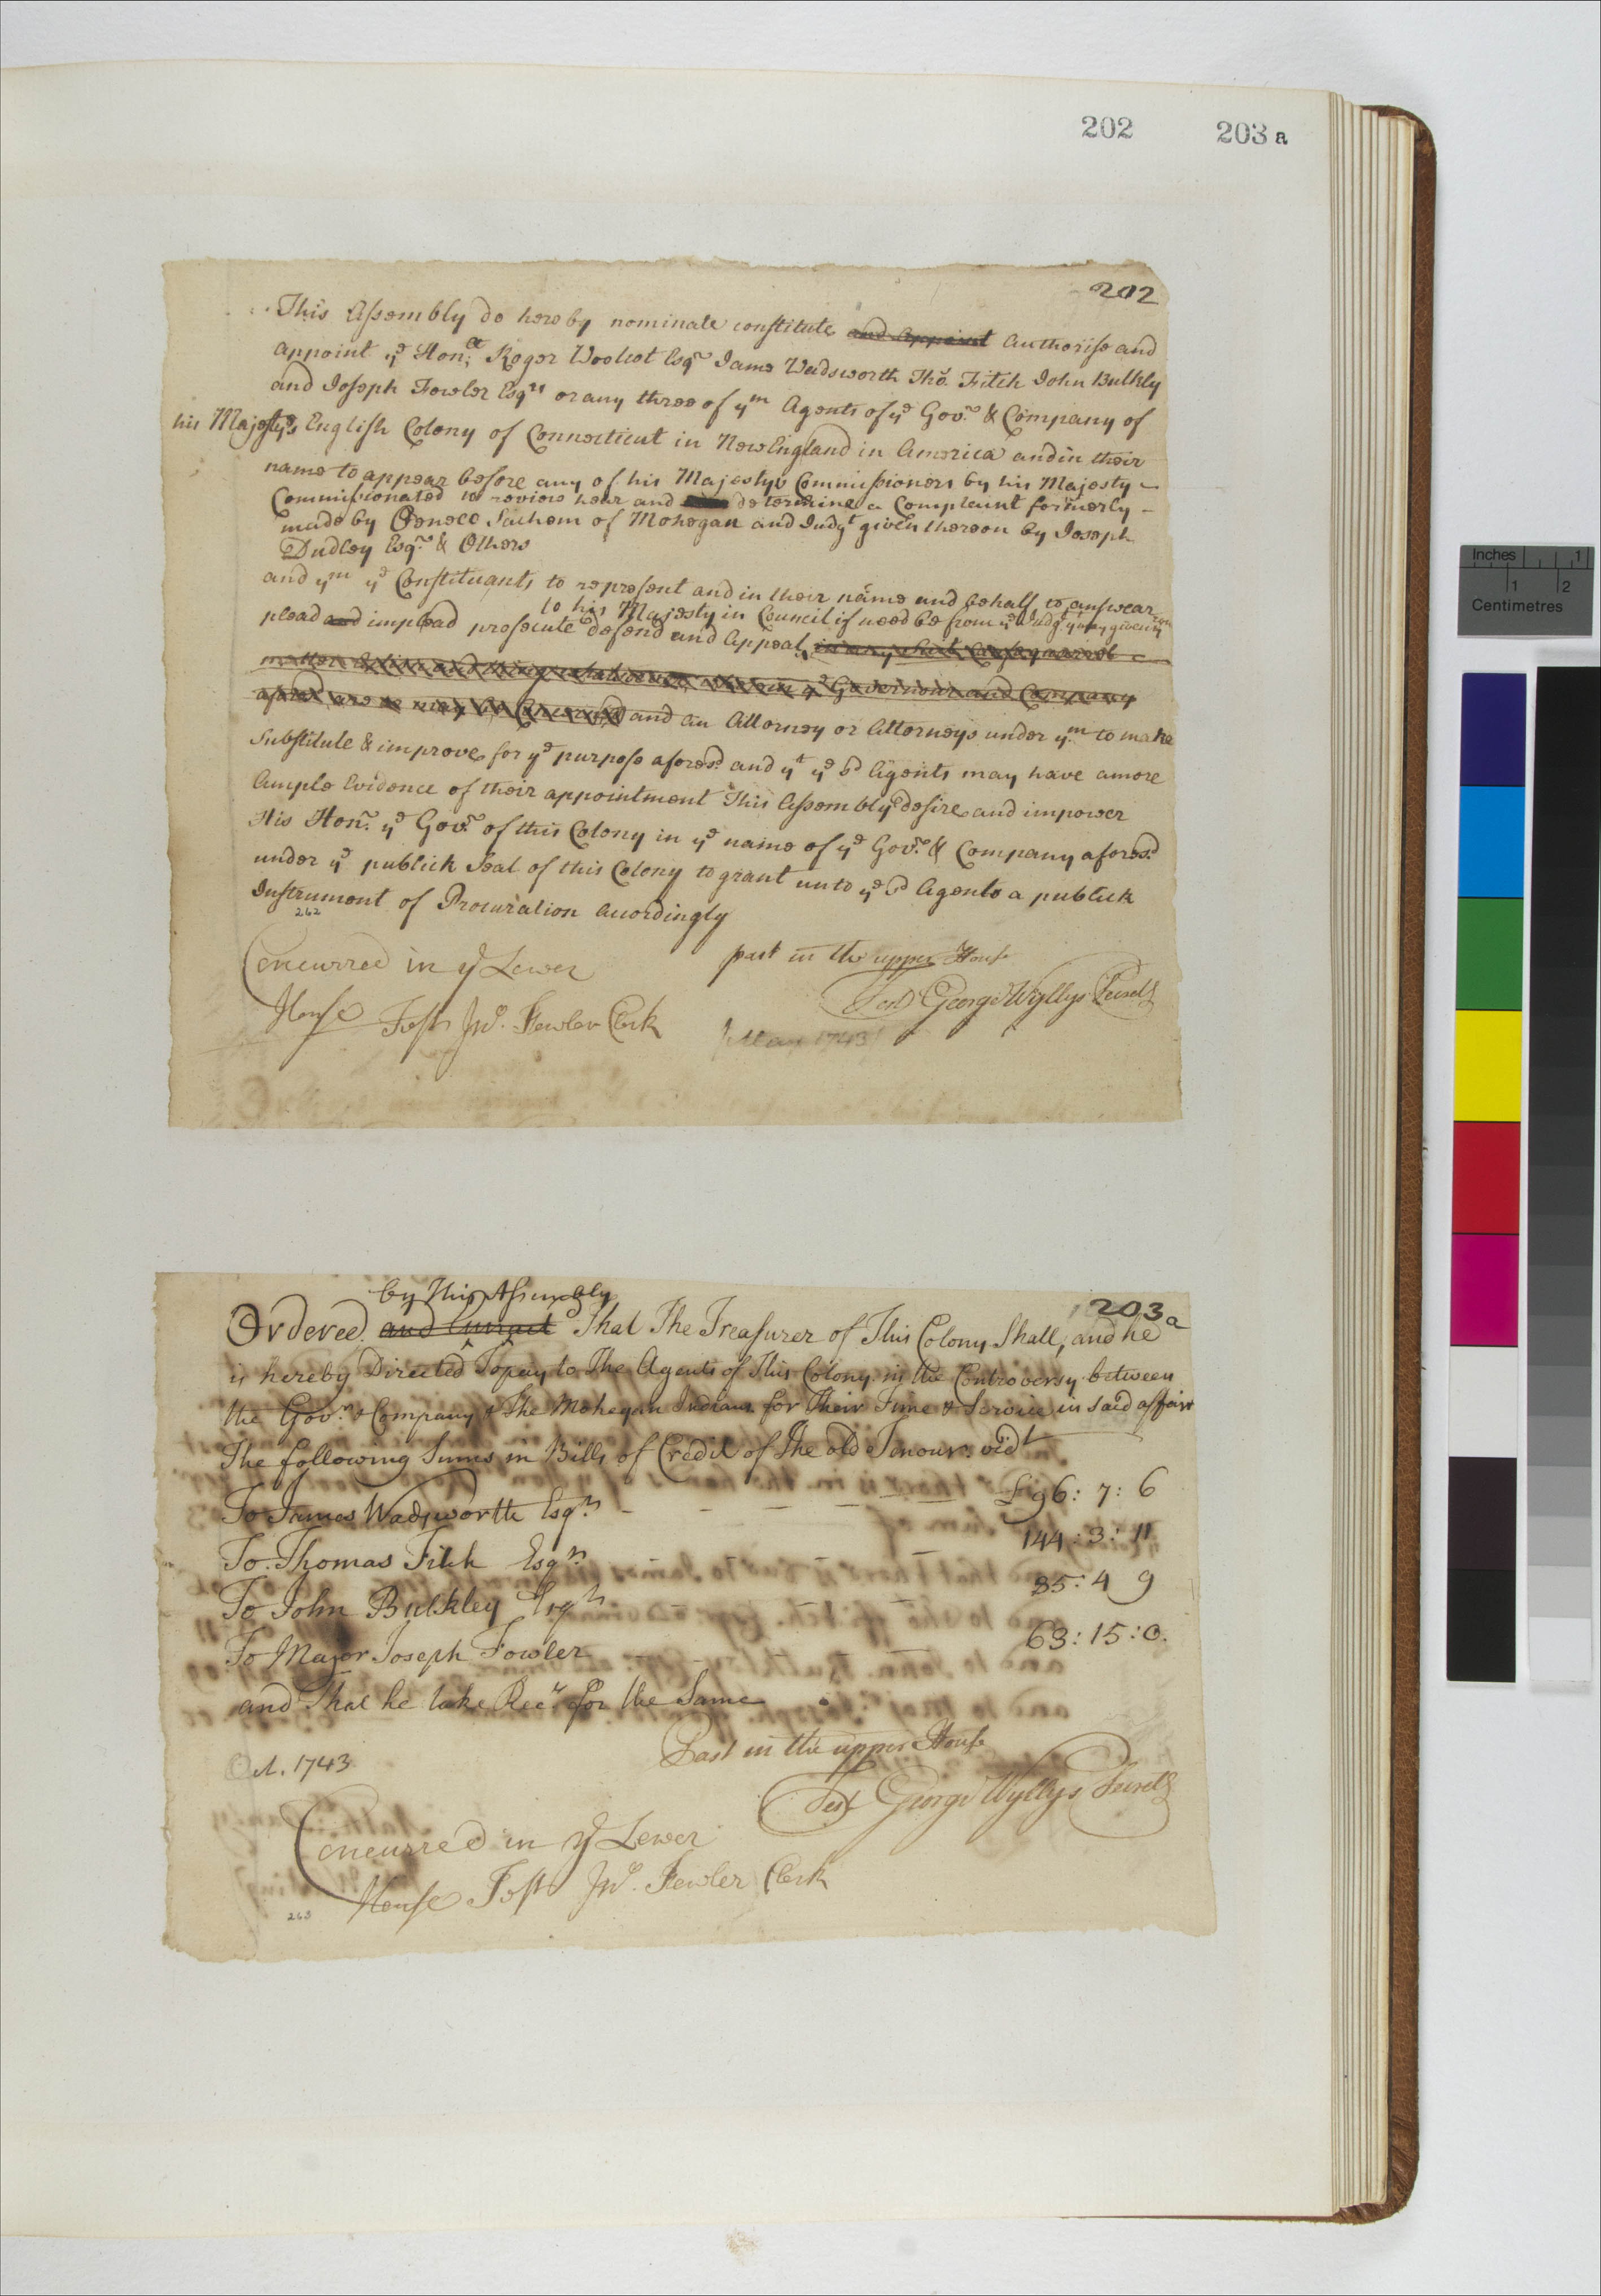 202 203 a
202
This Assembly do hereby nominate constitute and Appoint Authorise and
appoint ye Honble Roger Woolcot Esqr Jams Wadsworth Tho. Fitch John Bulkly
and Joseph Fowler Esqrs or any three of ym Agents of ye Govr & Company of
his Majestys English Colony of Connecticut in New England in America and in their
name to appear before any of his Majestys Commissioners by his Majesty
Commissionated to review hear and determine a Complaint formerly
made by Oeneco Sachem of Mohegan and Judgt given thereon by Joseph
Dudley Esqr & Others
and ym ye Constituants to represent and in their name and behalf to answear
to his Majesty in Council if need be from ye Judgt given
plead and implead prosecute defend and Appeal in any
matter ye Governour and Company
and an Attorney or Attorneys under ym to make
Substitute & improve for ye purpose aforesd and yt ye sd Agents may have a more
Ample Evidence of their appointment This Assembly desire and impower
His Honr ye Govr of this Colony in ye name of ye Govr & Company aforesd
under ye publick Seal of this Colony to grant unto ye sd Agents a publick
Instrument of Procuration Accordingly
262
Concurred in ye Lower
House Test Jno. Fowler Clerk
past in the upper House
Test George Wyllys Secrety
May 1743
203a
by This Assembly
Ordered and That The Treasurer of This Colony Shall, and he
is hereby Directed To pay to The Agents of This Colony in the Controversy between
the Govr & Company & The Mohegan Indians for Their Time & Service in said affair
The following Sums in Bills of Credit of The old Tenour. vidt
To James Wadsworth Esqr. - - - - £96: 7: 6
To Thomas Fitch Esqr. 144: 3: 11
To John Bulkley Esqr 35: 4 9
To Major Joseph Fowler 63: 15: 0.
and That he take Rect for the Same
Oct. 1743
Past in the upper House
Test George Wyllys Secrety
Concurred in ye Lower
House Test Jno. Fowler Clerk
263
Inches 1
1 2
Centimetres